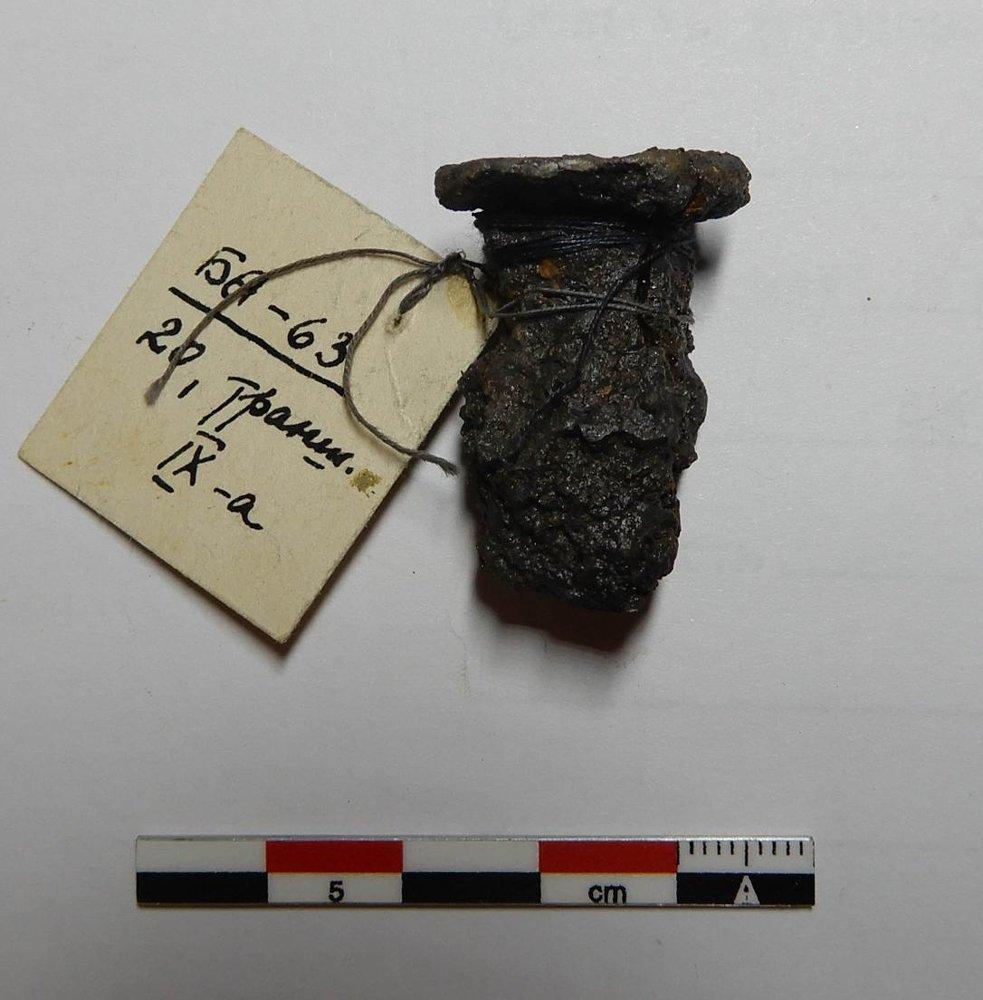 БА-63
20, Транш.
IX-а
5 cm